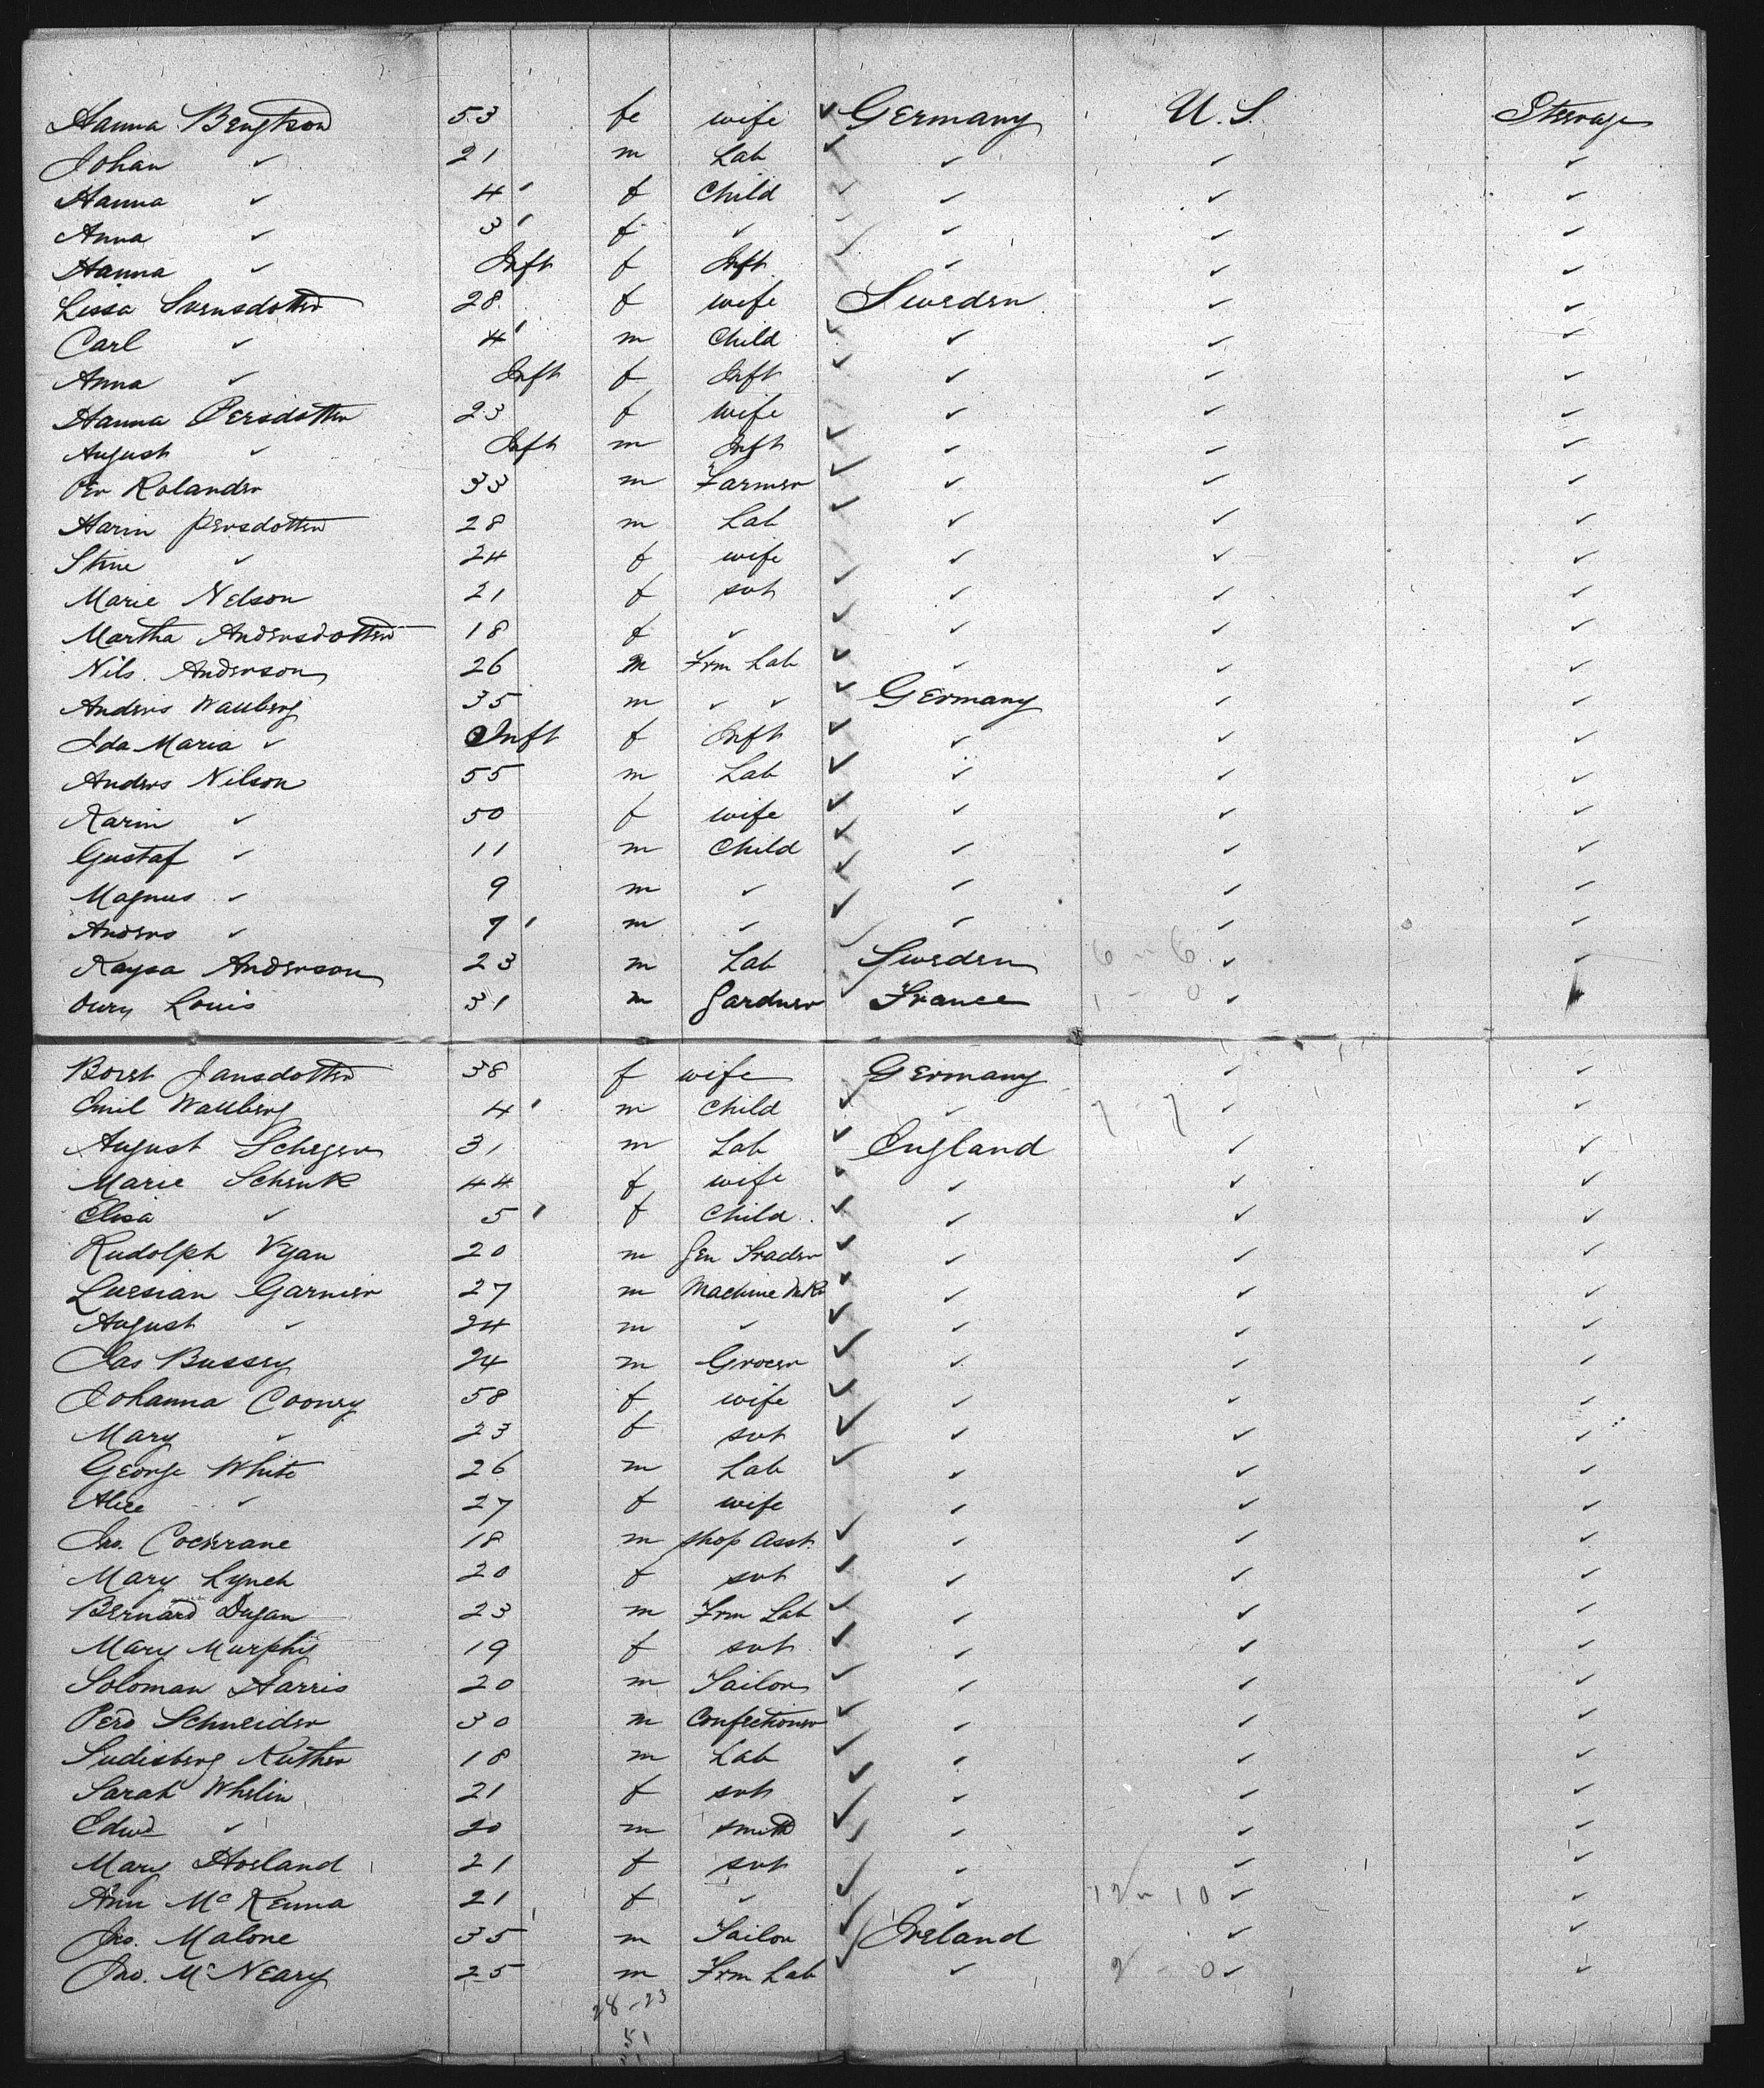 Hanna Bengtson 53 fe wife ✓ Germany U.S. Steerage
Johan ✓ 21 m Lab ✓ ✓ ✓ ✓
Hanna ✓ 4 ' f Child ✓ ✓ ✓ ✓
Anna ✓ 3 ' f ✓ ✓ ✓ ✓
Hanna ✓ Inft f Inft ✓ ✓ ✓
Lissa Svensdotter 28 f wife Sweden ✓ ✓
Carl ✓ 4 ' m Child ✓ ✓ ✓ ✓
Anna ✓ Inft f Inft ✓ ✓ ✓ ✓
Hanna Persdotter 23 f wife ✓ ✓ ✓
August ✓ Inft m Inft ✓ ✓ ✓ ✓
Per Rolander 33 m Farmer ✓ ✓ ✓ ✓
Harin Persdotter 28 m Lab ✓ ✓ ✓ ✓
Stine ✓ 24 f wife ✓ ✓ ✓
Marie Nelson 21 f svt ✓ ✓ ✓ ✓
Martha Andersdotter 18 f ✓ ✓ ✓ ✓ ✓
Nils. Anderson 26 m Frm Lab ✓ ✓ ✓ ✓
Anders Wallberg 35 m ✓ ✓ ✓ Germany ✓ ✓
Ida Maria ✓ Inft f Inft ✓ ✓ ✓ ✓
Anders Nilson 55 m Lab ✓ ✓ ✓ ✓
Karin ✓ 50 f wife ✓ ✓ ✓ ✓
Gustaf ✓ 11 m Child ✓ ✓ ✓ ✓
Magnus ✓ 9 m ✓ ✓ ✓ ✓ ✓
Anders ✓ 7 ' m ✓ ✓ ✓ ✓ ✓
Kaysa Anderson 23 m Lab ✓ Sweden 6 - 6 ✓
Oury Louis 31 m Gardner ✓ France 1 - 0 ✓
Boret Jansdotter 38 f wife Germany ✓ ✓
Emil Wallberg 4 ' m Child ✓ ✓ 7 7 ✓ ✓
August Scheger 31 m Lab ✓ England ✓ ✓
Marie Schenk 44 f wife ✓ ✓ ✓ ✓
Elisa ✓ 5 ' f Child ✓ ✓ ✓ ✓
Rudolph Vyan 20 m Gen Trader ✓ ✓ ✓ ✓
Luesian Garnier 27 m Machine Mkr ✓ ✓ ✓ ✓
August ✓ 24 m ✓ ✓ ✓ ✓ ✓
Jas Bussey 24 m Grocer ✓ ✓ ✓ ✓
Johanna Cooney 58 f wife ✓ ✓ ✓ ✓
Mary ✓ 23 f svt ✓ ✓ ✓ ✓
George White 26 m Lab ✓ ✓ ✓ ✓
Alice ✓ 27 f wife ✓ ✓ ✓
Jno. Cochrane 18 m Shop Asst. ✓ ✓ ✓ ✓
Mary Lynch 20 f svt ✓ ✓ ✓ ✓
Bernard Dugan 23 m Frm Lab ✓ ✓ ✓ ✓
Mary Murphy 19 f svt ✓ ✓ ✓ ✓
Soloman Harris 20 m Tailor ✓ ✓ ✓ ✓
Perd Schneider 30 m Confectioner ✓ ✓ ✓ ✓
Sudisberg Ruther 18 m Lab ✓ ✓ ✓ ✓
Sarah Whelin 21 f svt ✓ ✓ ✓ ✓
Edwd ✓ 20 m Smith ✓ ✓ ✓ ✓
Mary Horland 21 f svt ✓ ✓ ✓ ✓
Ann McKenna 21 f ✓ ✓ ✓ 12 - 10 ✓ ✓
Jno. Malone 35 m Tailor ✓ Ireland ✓ ✓
Jno. McNeary 25 m Frm Lab ✓ ✓ 2 - 0 ✓ ✓
28 - 23
51